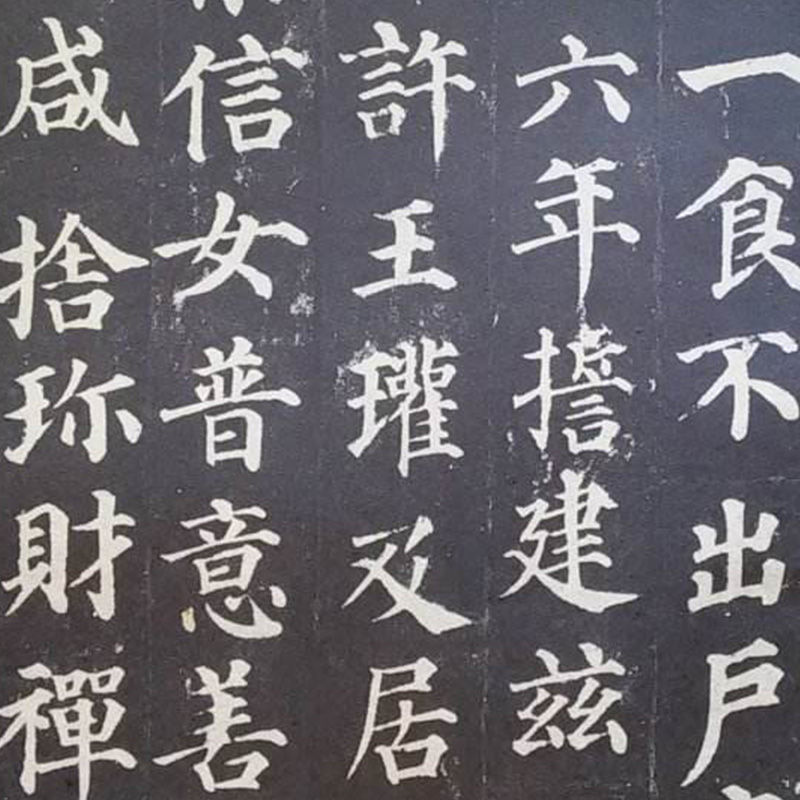 一食不出戶
六年擔建茲
許王瓘及居
信女普意善
咸捨珎財禪